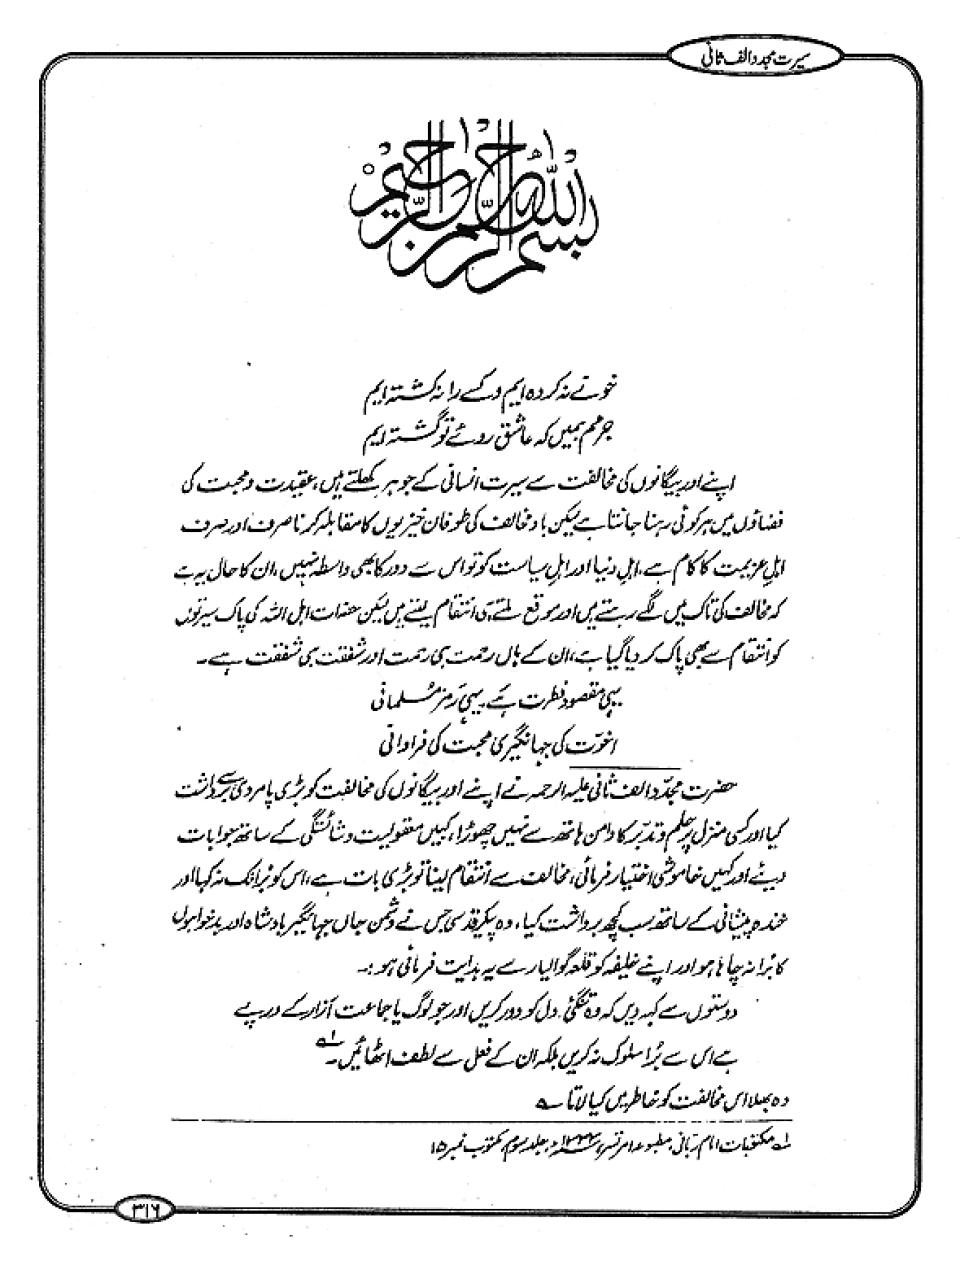 سیرت مجدد الف ثانی
بسم الله الرحمن الرحيم
خونے نہ کردہ ایم و کسے را نہ کشتہ ایم
جرمم ہمیں کہ عاشق روئے تو گشتہ ایم
اپنے اور بیگانوں کی مخالفت سے سیرت انسانی کے جوہر کھلتے ہیں، عقیدت و محبت کی
فضاؤں میں ہر کوئی رہنا جانتا ہے لیکن باد مخالف کی طوفان خیزیوں کا مقابلہ کرنا صرف اور صرف
اہلِ عزیمت کا کام ہے، اہلِ دنیا اور اہلِ سیاست کو تو اس سے دور کا بھی واسطہ نہیں، ان کا حال یہ ہے
کہ مخالف کی تاک میں لگے رہتے ہیں اور موقع ملتے ہی انتقام لیتے ہیں لیکن حضرات اہل اللہ کی پاک سیرتوں
کو انتقام سے بھی پاک کر دیا گیا ہے، ان کے ہاں رحمت ہی رحمت اور شفقت ہی شفقت ہے۔
یہی مقصود فطرت ہے یہی رمز مسلمانی
اخوّت کی جہانگیری محبت کی فراوانی
حضرت مجدّد الف ثانی علیہ الرحمہ نے اپنے اور بیگانوں کی مخالفت کو بڑی پامردی سے برداشت
کیا اور کسی منزل پر حلم و تدبّر کا دامن ہاتھ سے نہیں چھوڑا، کہیں معقولیت و شائستگی کے ساتھ جوابات
دیئے اور کہیں خاموشی اختیار فرمائی، مخالف سے انتقام لینا تو بڑی بات ہے، اس کو بُرا تک نہ کہا اور
خندہ پیشانی کے ساتھ سب کچھ برداشت کیا، وہ پیکرِ قدسی جس نے دشمن جاں جہانگیر بادشاہ اور بدخواہوں
کا بُرا نہ چاہا ہو اور اپنے خلیفہ کو قلعہ گوالیار سے یہ ہدایت فرمائی ہو:۔
دوستوں سے کہہ دیں کہ وہ تنگیٔ دل کو دور کریں اور جو لوگ یا جماعت آزار کے درپے
ہے اس سے بُرا سلوک نہ کریں بلکہ ان کے فعل سے لطف اٹھائیں۔ ۱؎
وہ بھلا اس مخالفت کو خاطر میں کیا لاتا ہے
۱؎ مکتوبات امام ربّانی، مطبوعہ امرتسر، ۱۳۳۴ھ، جلد سوم، مکتوب نمبر ۱۵
۳۱۶